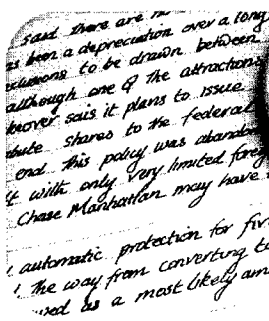 said there are
been a depreciation over a long
to be drawn between
although one of the attractions
sais it plans to issue
shares to the federal
end this policy was
with only very limited
Chase Manhattan may have
automatic protection for
the way from converting to
as a most likely